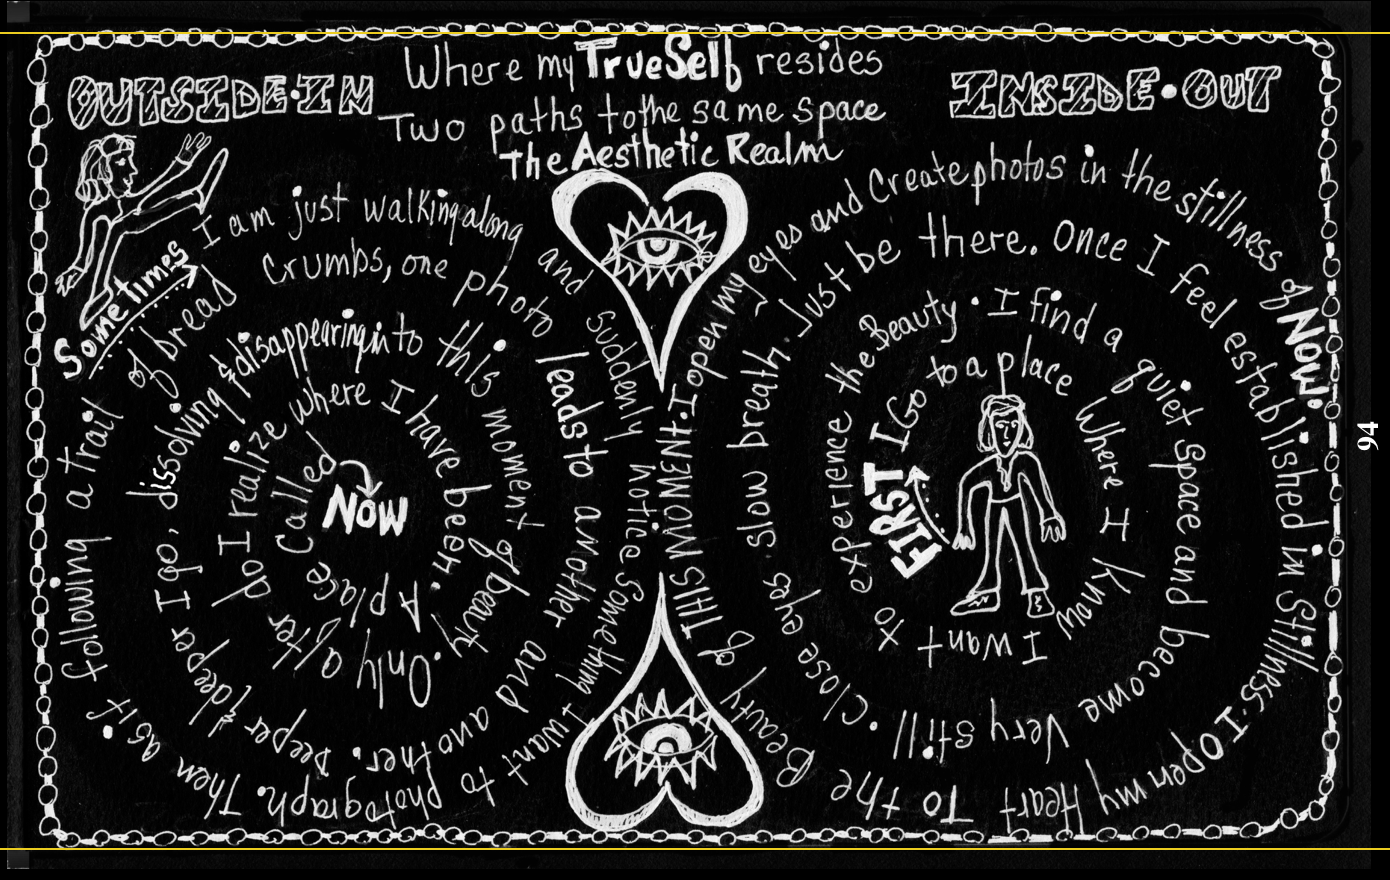 Where my TrueSelf resides
Two paths to the same space
The Aesthetic Realm
OUTSIDE·IN
Sometimes
I am just walking along
and suddenly notice something I want to
photograph. Then as if following a trail of bread
crumbs, one photo leads to another and
another. Deeper & deeper I go, dissolving & disappearing into
this moment of beauty.
Only after do I realize where I have been. A place
called
NOW
INSIDE·OUT
FIRST I Go to a place Where I know
I want to experience the Beauty. I find a quiet space and become
very still. Close eyes. Slow breath. Just be there. Once I feel established in Stillness. I open my
Heart To the Beauty of THIS MOMENT. I open my eyes and Create photos in the stillness of NOW.
94